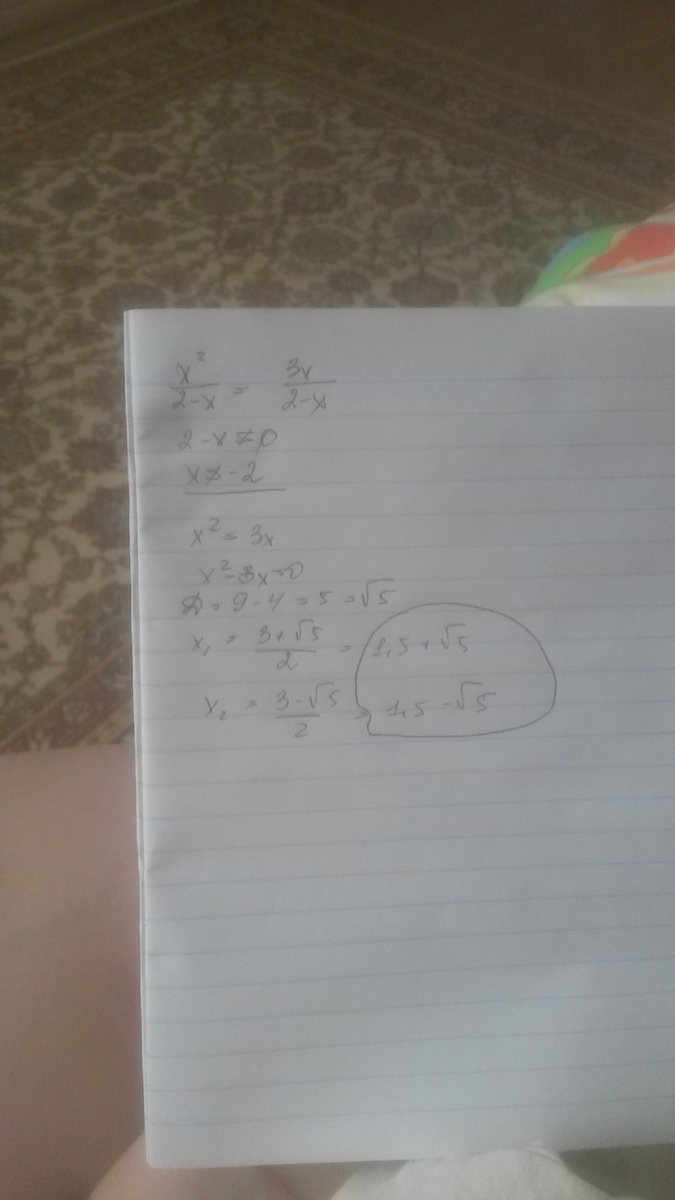 x²/(2-x) = 3x/(2-x)
2-x≠0
x≠-2
x² = 3x
x²-3x=0
D = 9-4 = 5 = √5
x₁ = (3+√5)/2 = 1,5+√5
x₂ = (3-√5)/2 = 1,5-√5